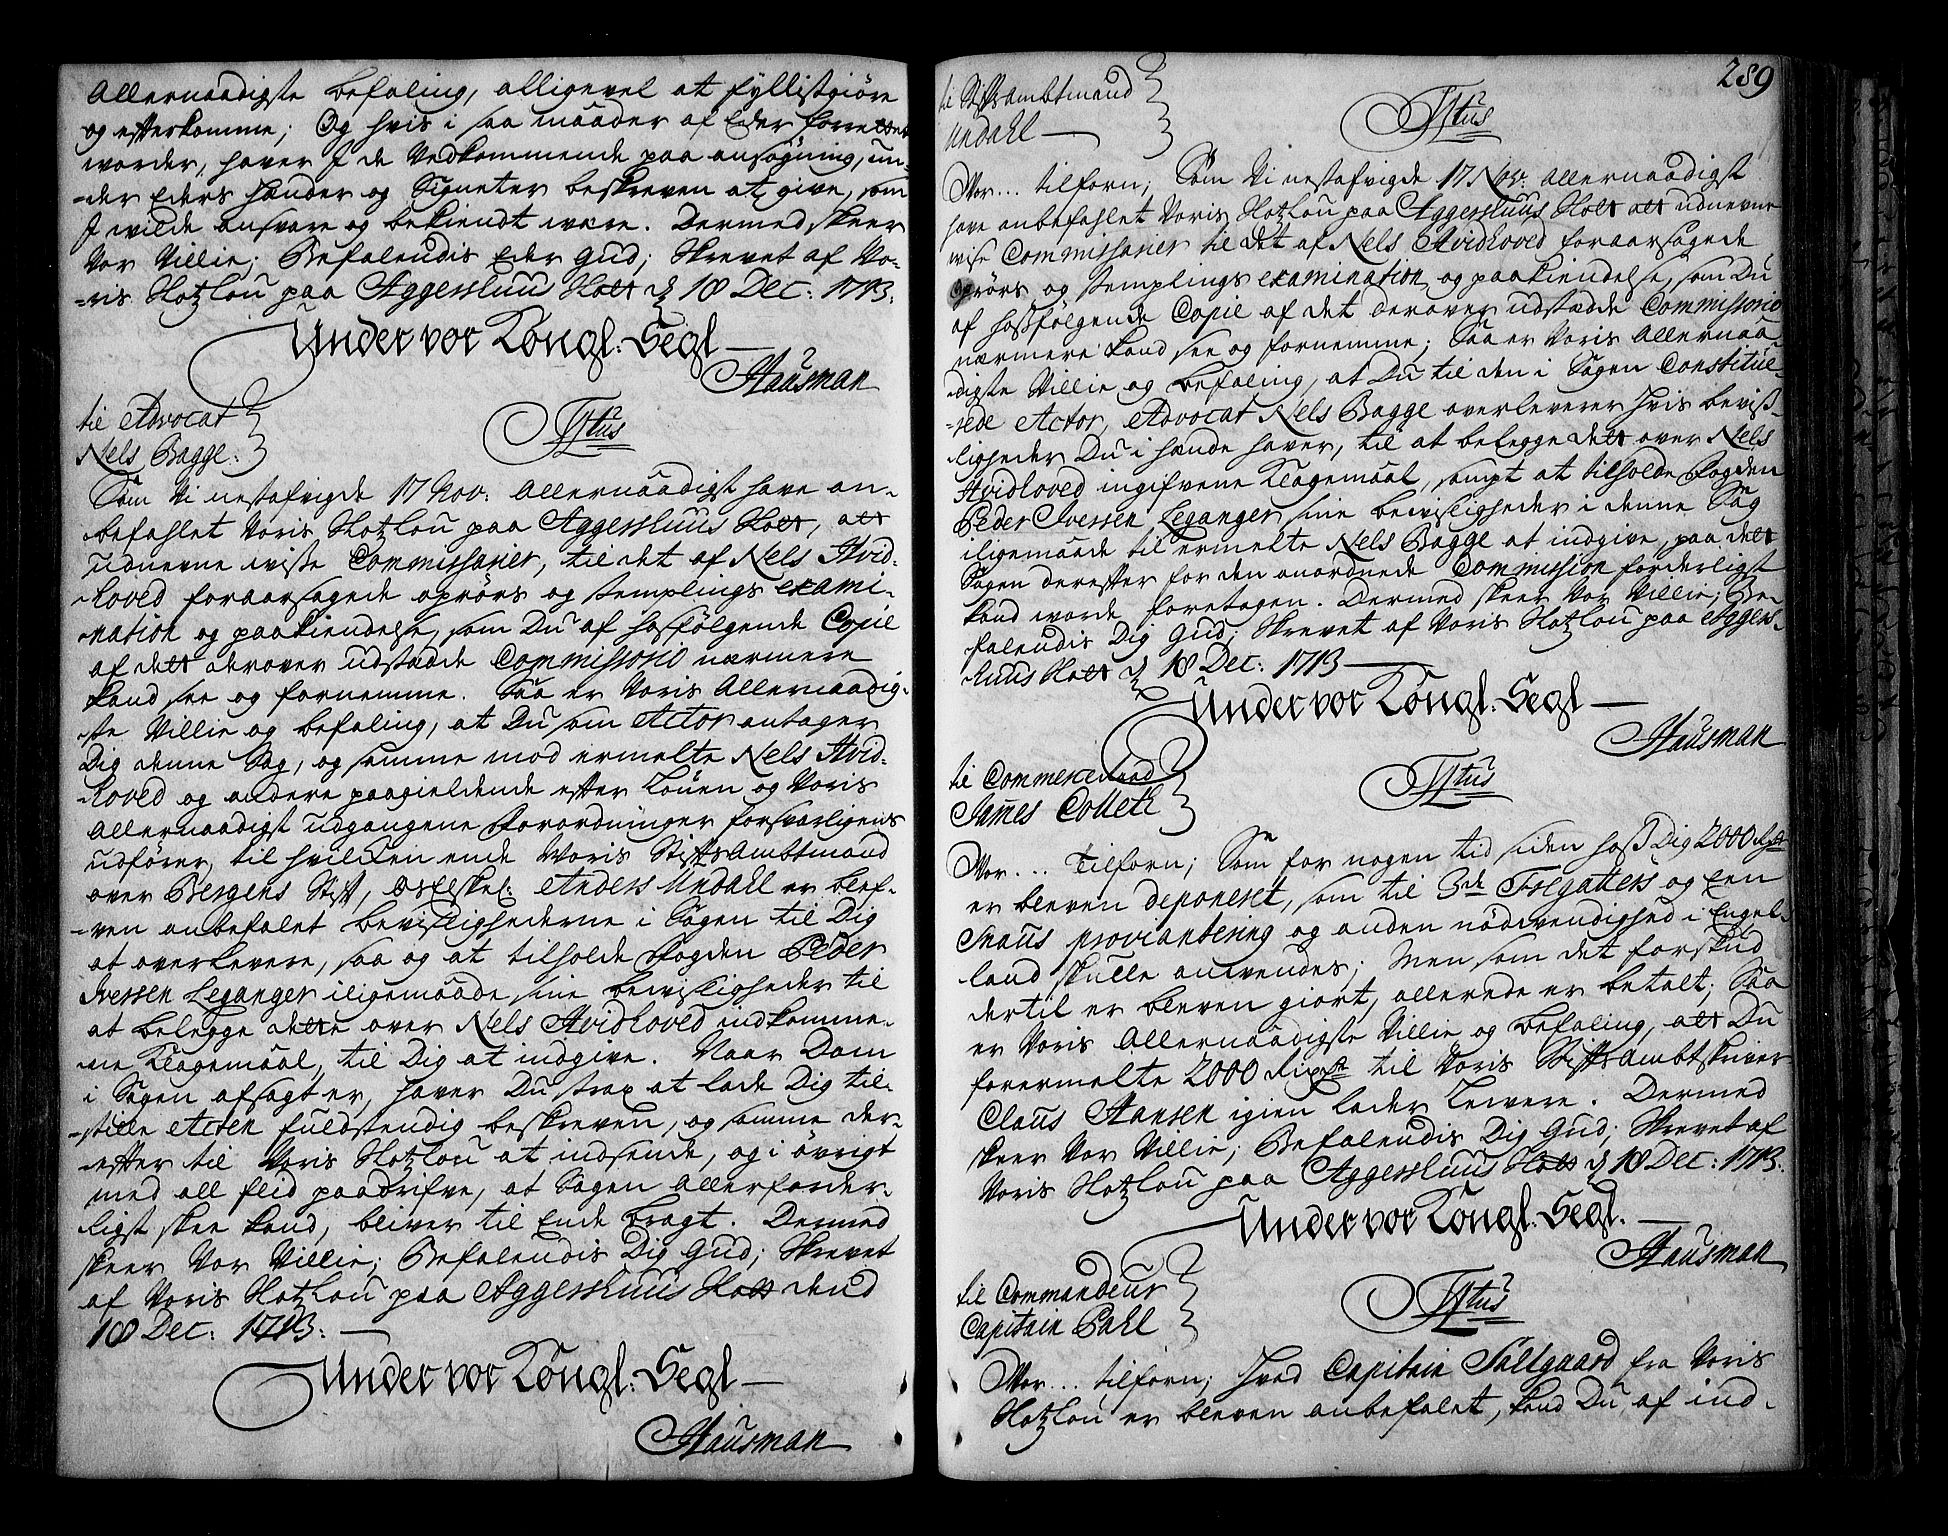 Allernaadigste befaling, alligevel at fyllistgiøre
og efterkomme; Og hvis i saa maader af Eder forrettet
worder, haver I de Vedkommende paa ansøgning, un-
-der Eders Hænder og Signeter beskreven at give, som
I wilde ansvare og bekiendt være. Dermed skeer
Vor Villie; Befalendis Eder Gud; Skrevet af Vo-
-ris Slotzlou paa Aggershuus Slott d 18 Dec: 1713.
Under vor Kongl: Segl
Hausman
til Advocat
Nels Bagge:
Ttus
Som Vi nestafvigde 17 Nov: Allernaadigst have an-
befahlet Voris Slotzlou paa Aggershuus Slott, att
udnevne visse Commissarier, til det af Nels Hvid-
-hoved foraarsagede oprørs og stemplings exami-
-nation og paakiendelse, som Du af hosfølgende Copie
af dett derover udstædde Commissorio nærmere
kand see og fornemme. Saa er Voris Allernaadig-
-ste Villie og befaling, at Du som Actor antager
Dig denne Sag, og samme mod ermelte Nels Hvid-
-hoved og andere paagieldende efter Louen og Voris
Allernaadigst udgangene Forordninger forsvarligens
udfører, til hvilken ende Voris Stiftsambtmand
over Bergens Stift, Anders Undahl er blef-
-ven anbefalet bevisslighederne i Sagen til Dig
at overlevere, saa og at tilholde Fogden Peder
Iverssen Leganger iligemaade sine bevissligheder til
at belegge dette over Nels Hvidhoved indkomme-
-ne Klagemaal, til Dig at indgive. Naar Dom
i Sagen afsagt er, haver Du strax at lade Dig til-
-stille Acten fuldstendig beskreven, og samme der-
-efter til Voris Slotzlou at indsende, og i øvrigt
med all flid paadrifve, at Sagen Allerforder-
-ligst skee kand, bliver til Ende bragt. Dermed
skeer Vor Villie; Befalendis Dig Gud; Skrevet
af Voris Slotzlou paa Aggershuus Slott dend
18 Dec: 1713.
Under vor Kongl: Segl
Hausman
289
til Stiftsambtmand
Undahl
Ttus
Vor... tilforn; Som Vi nestafvigde 17 Nov: Allernaadigst
have anbefahlet Voris Slotzlou paa Aggershuus Slott att udnevne
visse Commissarier til det af Nels Hvidhoved foraarsagede
oprørs og stemplings examination og paakiendelse, som Du
af hosfølgende Copie af det derover udstædde Commissorio
nærmere kand see og fornemme; Saa er Voris Allernaa-
digste Villie og befaling, at Du til den i Sagen Constitue-
-rede Actor, Advocat Nels Bagge overleverer hvis beviss-
-ligheder Du i hænde haver, til at belegge dett over Nels
Hvidhoved ingifvene Klagemaal, sampt at tilholde Fogden
Peder Iverssen Leganger sine bevissligheder i denne Sag
iligemaade til ermelte Nels Bagge at indgive, paa dett
Sagen derefter for den anordnede Commission forderligst
kand worde foretagen. Dermed skeer Vor Villie; Be-
falendis Dig Gud; Skrevet af Voris Slotzlou paa Aggers-
-huus Slott d 18 Dec: 1713
Under vor Kongl: Segl
Hausman
til
James Colleth
Ttus
Vor... tilforn; Som for nogen tid siden hoss Dig 2000
er bleven deponeret, som til 3de Fregatters og een
Snaus proviantering og anden nødvendighed i Engel-
land skulle anvendes; Men som det forskud
dertil er bleven giort, allerede er betalt; Saa
er Voris Allernaadigste Villie og befaling, att Du
forermelte 2000 til Voris Stiftsambtskriver
Claus Hansen igien lader Levere. Dermed
skeer Vor Villie; Befalendis Dig Gud; Skrevet af
Voris Slotzlou paa Aggershuus Slott d 18 Dec: 1713.
Under vor Kongl: Segl.
Hausman
til Commandeur
Capitain Pahl
Ttus
Vor... tilforn; Hvad Capitain fra Voris
Slotzlou er bleven anbefalet, kand Du af ind-